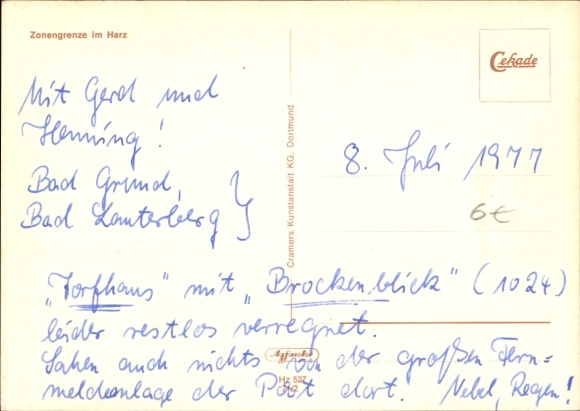 Zonengrenze im Harz
Cekade
Mit Gerd und
Henning!
8. Juli 1977
Bad Grund,
Bad Lauterberg
6€
Cramers Kunstanstalt KG. Dortmund
„Torfhaus" mit „Brockenblick" (1024)
leider restlos verregnet.
Sahen auch nichts von der großen Fern=
meldeanlage der Post dort. Nebel, Regen!
Hz 522